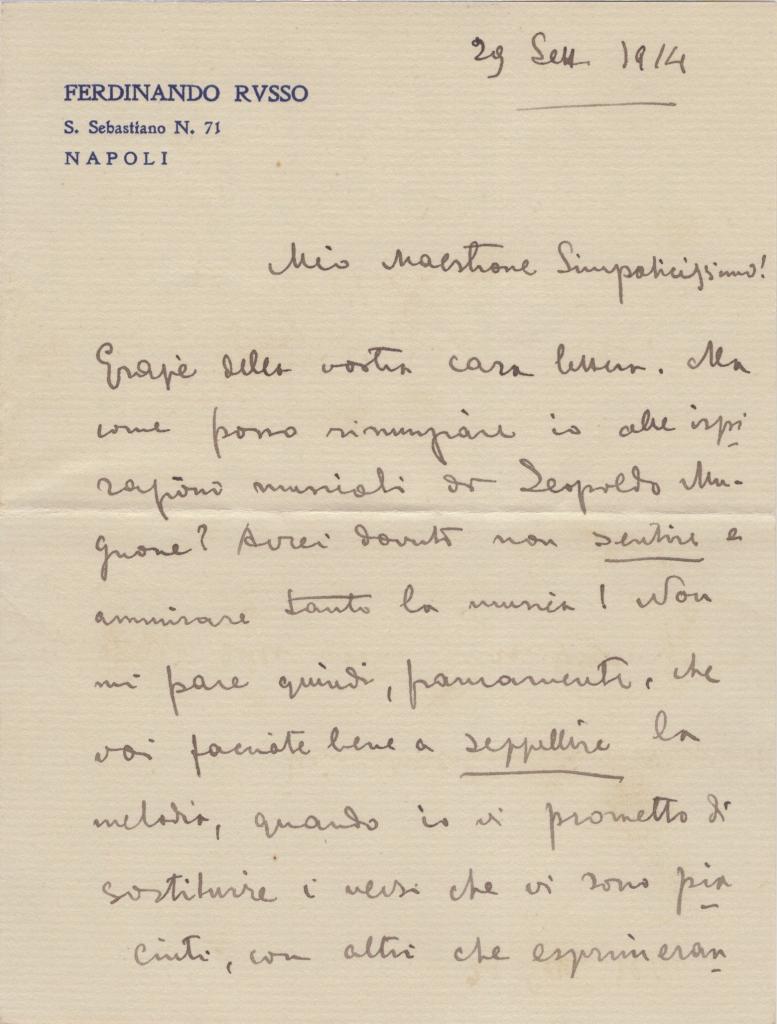 29 Sett. 1914
FERDINANDO RVSSO
S. Sebastiano N. 71
NAPOLI
Mio Maestrone Simpaticissimo!
Grazie della vostra cara lettera. Ma
come posso rinunziare io alle ispi
razioni musicali di Leopoldo Mu-
gnone? Avrei dovuto non sentire e
ammirare tanto la musica! Non
mi pare quindi, francamente, che
voi facciate bene a seppellire la
melodia, quando io vi prometto di
sostituire i versi che vi sono pia
ciuti, con altri che esprimeran